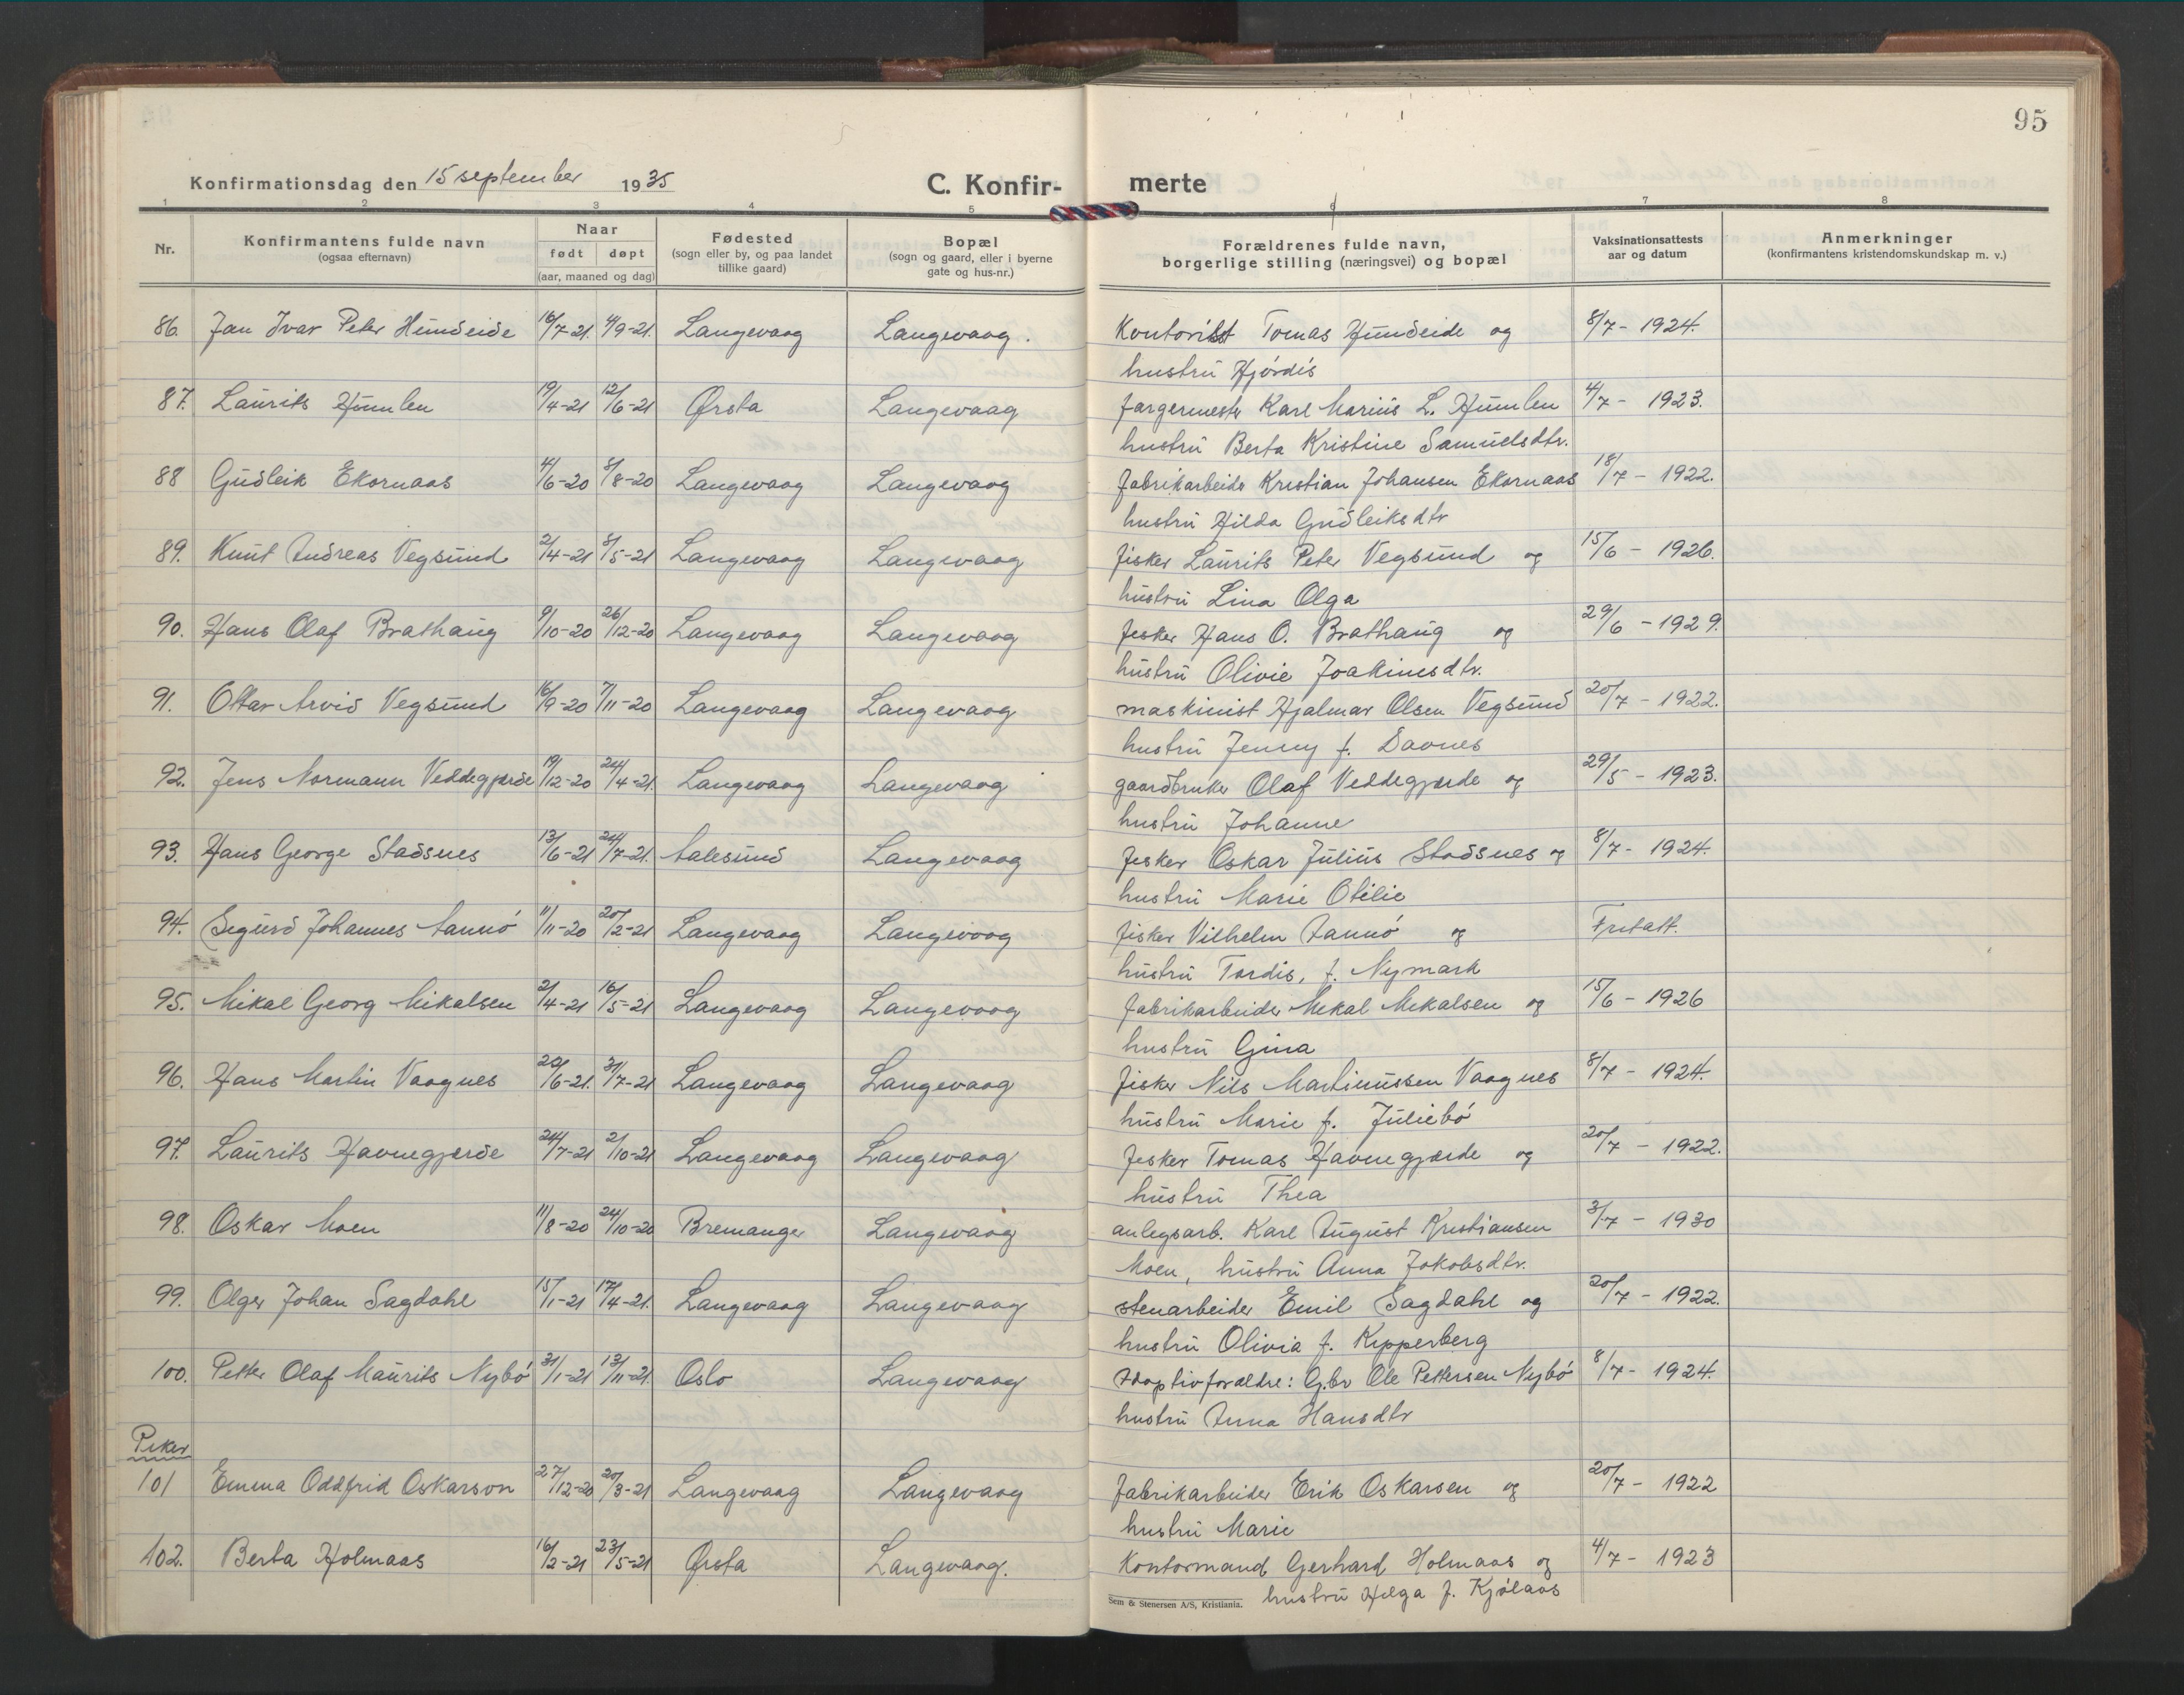 95
Konfirmationsdag den 15 september 1935 C. Konfir- merte
1 2 3 4 5 6 7 8
Nr. Konfirmantens fulde navn (ogsaa efternavn) Naar født døpt (aar, maaned og dag) Fødested (sogn eller by, og paa landet tillike gaard) Bopæl (sogn og gaard, eller i byerne gate og hus-nr.) Forældrenes fulde navn, borgerlige stilling (næringsvei) og bopæl Vaksinationsattests aar og datum Anmerkninger (konfirmantens kristendomskundskap m. v.)
86. Jan Ivar Peter Hundeide 16/7-21. 4/9-21. Langevaag Langevaag. Kontorist Tomas Hundeide og 8/7 - 1924.
hustru Hjórdis
87. Laurits Humlen 19/4-21 12/6-21 Ørsta Langevaag fargermestr Karl Marius L. Humlen 4/7 - 1923.
hustru Berta Kristine Samuelsdtr.
88 Gudleik Ekornaas 4/6-20 8/8-20 Langevaag Langevaag fabrikarbeider Kristian Johansen Ekornaas 18/7 - 1922.
hustru Hilda Gudleiksdtr
89. Knut Andreas Vegsund 2/4-21 8/5-21 Langevaag Langevaag fisker Laurits Peter Vegsund og 15/6 - 1926.
hustru Lina Olga
90. Hans Olaf Brathaug 9/10-20 26/12-20 Langevaag Langevaag fisker Hans O. Brathaug og 29/6 - 1929.
hustru Olivie Joakimsdtr.
91. Ottar Arvid Vegsund 16/9-20 7/11-20 Langevaag Langevaag maskinist Hjalmar Olsen Vegsund 20/7 - 1922.
hustru Jenny f. Davnes
92. Jens Normann Veddegjærde 19/12-20 24/4-21. Langevaag Langevaag gaardbruker Olaf Veddegjærde og 29/5 - 1923.
hustru Johanne
93. Hans George Stadsnes 13/6-21 24/7-21. Aalesund Langevaag fisker Oskar Julius Stadsnes og 8/7 - 1924.
hustru Marie Otilie
94. Sigurd Johannes Aannó 11/11-20 20/2-21 Langevaag Langevaag fisker Vilhelm Aannó og Fritatt.
hustru Tordis, f. Nymark
95. Mikal Georg Mikalsen 2/4-21 16/5-21 Langevaag Langevaag fabrikarbeider Mikal Mikalsen og 15/6 - 1926
hustru Gina
96. Hans Martin Vaagnes 20/6-21. 31/7-21 Langevaag Langevaag fisker Nils Martinussen Vaagnes 8/7 - 1924.
hustru Marie f. Juliebó
97. Laurits Havnegjærde 24/7-21 2/10-21 Langevaag Langevaag fisker Tomas Havnegjærde og 20/7 - 1922.
hustru Thea
98. Oskar Moen 11/8-20 24/10-20 Bremanger Langevaag anlegsarb. Karl August Kristiansen 3/7 - 1930
Moen, hustru Anna Jakobsdtr.
99. Olger Johan Sagdahl 15/1-21 17/4-21. Langevaag Langevaag stenarbeider Emil Sagdahl og 20/7 - 1922.
hustru Olivia f. Kipperberg
100. Petter Olaf Maurits Nybó 31/1-21 13/11-21. Oslo Langevaag Adoptivforældre: G.br Ole Pettersen Nybó 8/7 - 1924.
hustru Anna Hansdtr
Piker
101 Emma Oddfrid Oskarson 27/12-20 20/3-21 Langevaag Langevaag fabrikarbeider Erik Oskarsen og 20/7 - 1922
hustru Marie
102. Berta Holmaas 16/2-21 23/5-21 Ørsta Langevaag. Kontormand Gerhard Holmaas og 4/7 - 1923
hustru Helga f. Kjólaas
Sem & Stenersen A/S, Kristiania.